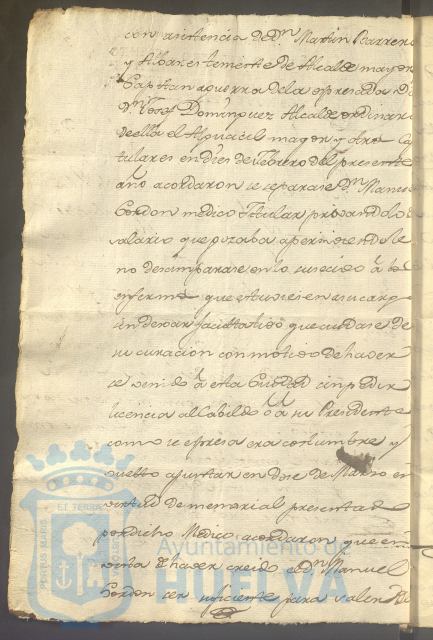 con asistencia de Dn. Martin Barreno
y theniente de Alcalde mayor
Capitan aguerra de la espresada
Dn. Josef Dominguez Alcalde ordinari
de ella el Alguacil mayor y otros Ca
tulares en dies de febrero del presente
año acordaron se separase Dn. Manuel
Cordon medico Titular privandolo
salario que gozaba aperciviendole
no desamparase en lo susecivo a los
enfermos que estuviesen a su cargo
sin dexar facultativo que cuidase de
su curacion con motivo de haver
se venido a esta Ciudad sin pedir
licencia al Cabildo o a su Presidente
como se espresa era costumbre y
vuelto ajuntar en dose de Marzo en
virtud de memorial presentad
por dicho Medico acordaron que en
vista de haver creido el Dn. Manuel
Cordon ser suficiente para
Ayuntamiento de
HUELVA